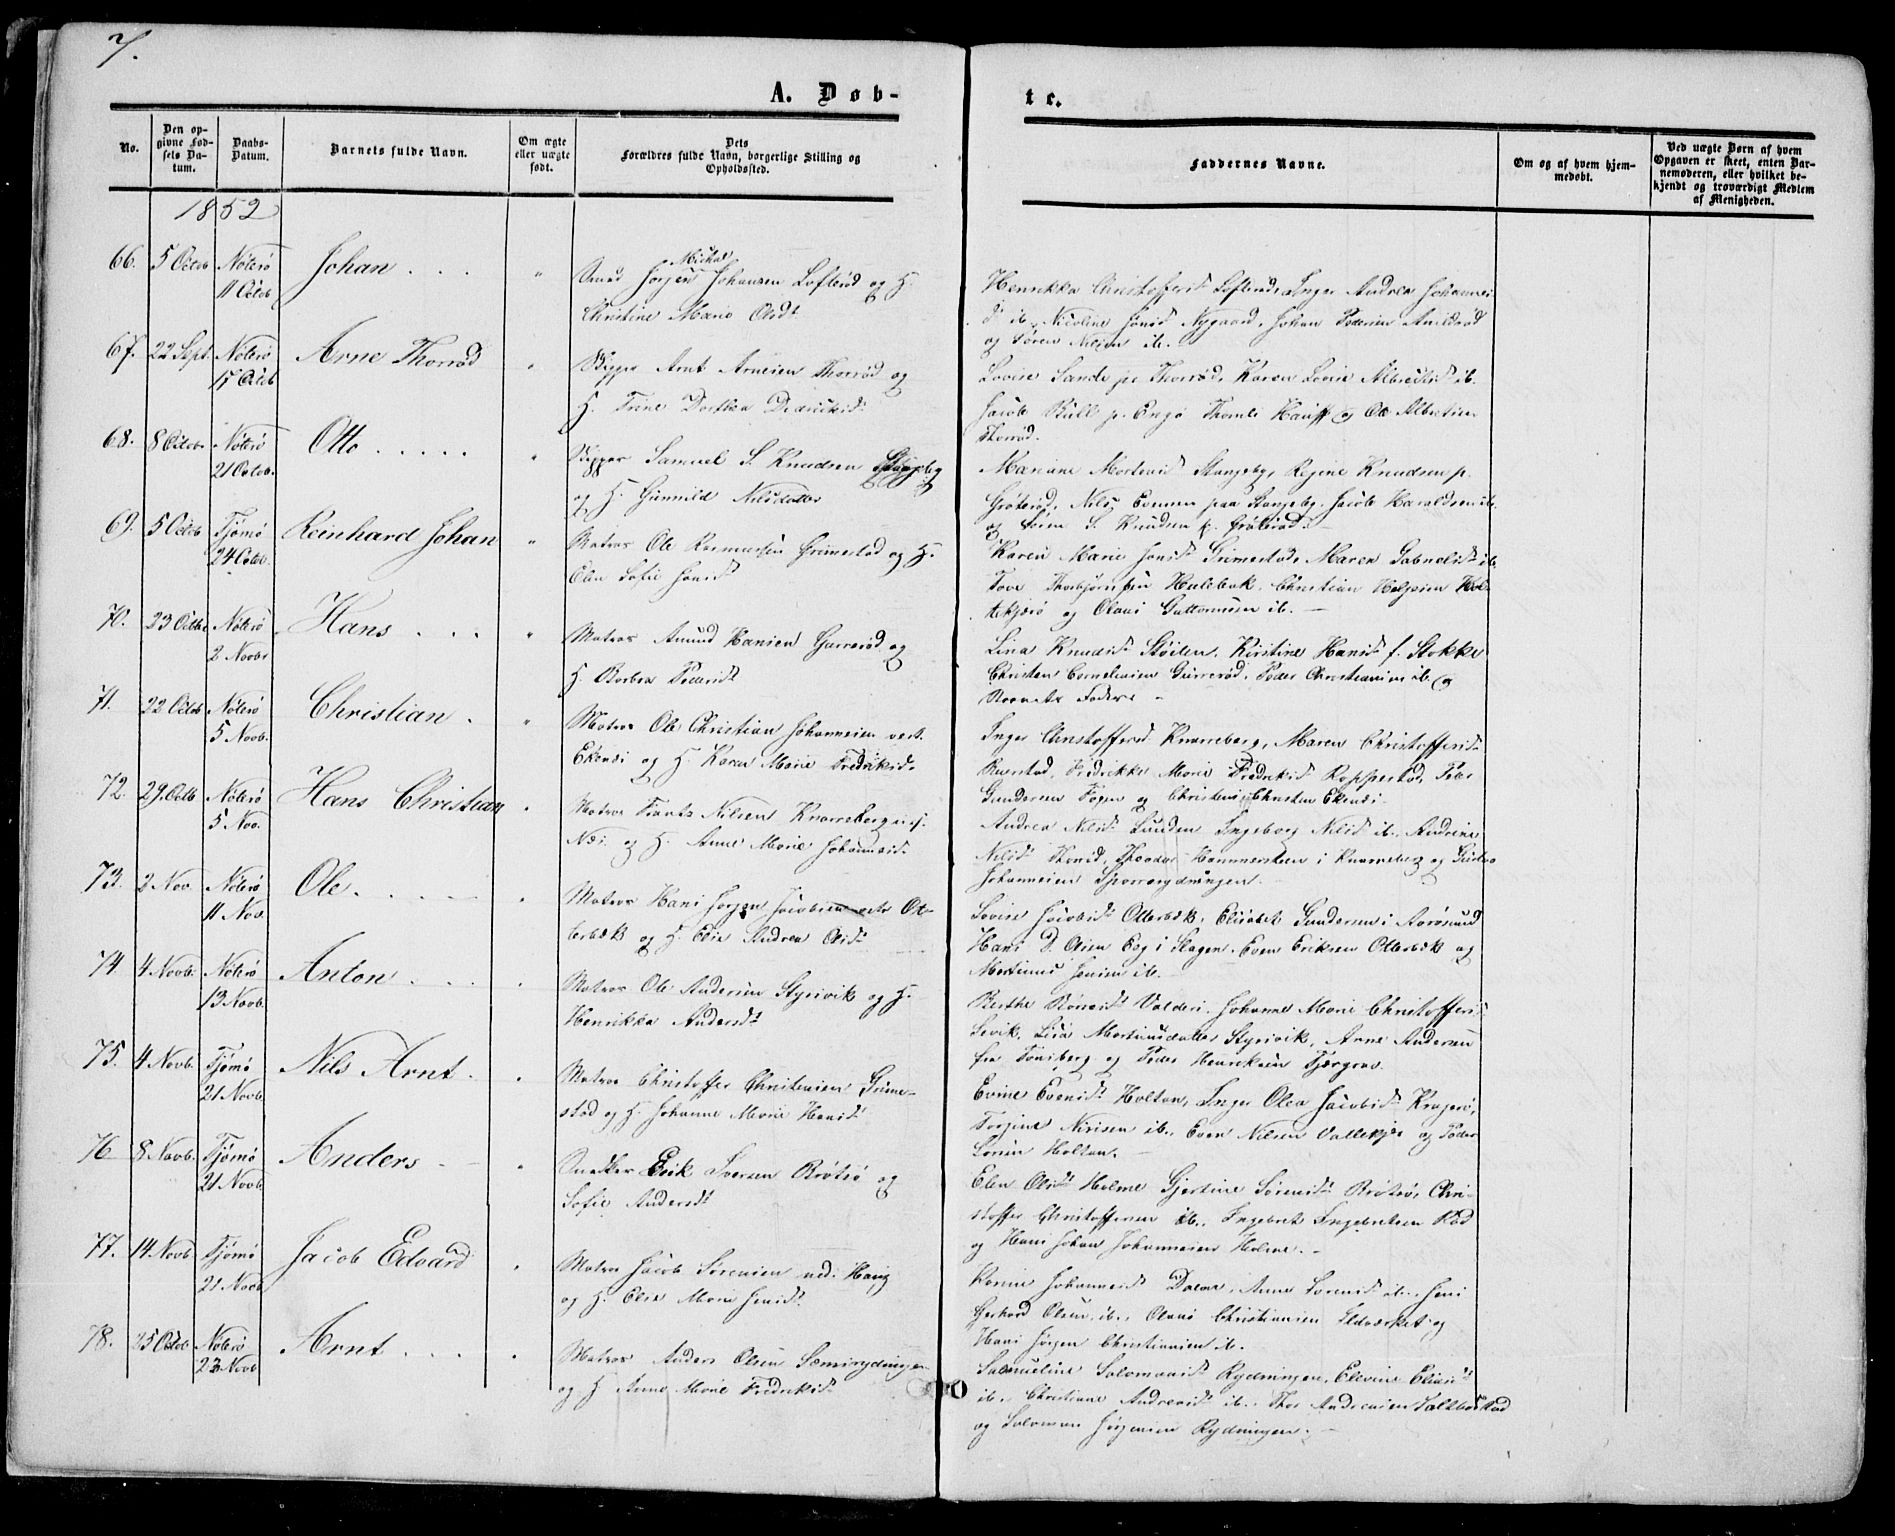 7.
A. Døb-
te.
No.
Den op-
givne Fød-
sels Da-
tum.
Daabs-
Datum.
Barnets fulde Navn.
Om ægte
eller uægte
født.
Dets
Forældres fulde Navn, borgerlige Stilling og
Opholdssted.
Faddernes Navne.
Om og af hvem hjem-
medøbt.
Ved uægte Børn af hvem
Opgaven er skeet, enten Bar-
nemoderen, eller hvilket be-
kjendt og troværdigt Medlem
af Menigheden.
1852
66. 5 Octob Nøterø
11 Octob
Johan
Michal
Smed Jørgen Johansen Lofterød og H.
Christine Marie Olsdt
Henrikka Christoffersdt Lofterød, Inger Andrea Johannes
dt ib. Nicoline Jonsdt Nygaard, Johan Pedersen
og Søren Nilsen ib.
67. 22 Sept. Nøterø
17 Octob
Arne Thorrød
Skipper Arnt Arnesen Thorrød og
H. Trine Dorthea Didriksdt
Lovise Sande p. Thorrød, Karen Lovise Albretsdt ib.
Jacob Bull p. Engø Thomle Hauff og Ole Albertsen
Thorrød.
68. 8 Octob. Nøterø
21 Octob.
Otto
Skipper Samuel S. Knudsen Stangeby
og H. Gunnild Nilsdatter
Mariane Mortensdt Stangeby, Regine Knudsen p.
Grøterød, Nils Evensen paa Stangeby. Jacob Haraldsen ib.
og Søren S. Knudsen p. Grøterød.
69. 5 Octob Tjømø
24 Octob.
Reinhard Johan
Matros Ole Rasmussen Grimestad og H.
Elen Sofie Jonsdt
Karen Marie Jonsdt Grimestad, Maren Gabrielsdt ib.
Tove Thorbjørnsen Hulebak, Christian Helgesen Hol-
tekjærø og Olaus Guttormsen ib.
70. 23 Octbr Nøterø
2 Novbr
Hans
Matros Amund Hansen Gurrerød og
H. Barbra Pedersdt
Lina Knudsdt Støilen, Kirstine Hansdt f. Stokke
Christen Corneliusen Gurrerød, Peder Christiansen ib. og
Barnets Fader.
71. 22 Octob Nøterø
5 Novb.
Christian
Matros Ole Christian Johannesen vest.
Ekenes og H. Karen Marie Fredriksdt
Inger Christoffersdt Knarreberg, Maren Christoffersdt
Ruerstad, Fredrikke Marie Fredriksdt Roppestad, Peder
Gundersen Føgen og Christen Christensen Ekenes.
72. 29 Octb Nøterø
5 Nov.
Hans Christian
Matros Frants Nilsen Knarreberg
Næs og H. Anne Marie Johannesdt
Andrea Nilsdt Lunden Ingeborg Nilsdt ib. Andrine
Nilsdt Theodor Hammersten i Knarreberg og Gustav
Johannesen Sporrerydningen.
73. 2 Nov. Nøterø
11 Nov.
Ole
Matros Hans Jørgen Jacobsen vestr Ot-
terbæk og H. Elise Andrea Olsdt
Lovise Jacobsdt Otterbæk, Elisabet Gundersen i Aarøsund
Hans D. Olsen Eeg i Slagen. Even Eriksen Otterbæk og
Martinus Jensen ib.
74. 4 Novb. Nøterø
13 Novb.
Anton
Matros Ole Andersen Styrsvik og H.
Henrikka Andersdt
Berthe Børresdt Valders, Johanne Marie Christoffersdt
Sevik, Lisa Martinusdatter Styrsvik, Arne Andersen
fra Tønsberg og Peder Henriksen Tjærgrav.
75. 4 Novb. Tjømø
21 Novb.
Nils Arnt
Matros Christoffer Christensen Grime-
stad og H. Johanne Marie Hansdt
Evine Evensdt Holtan, Inger Olea Jacobsdt Kragerø,
Torgine Nirisen ib., Even Nilsen Vallekjær og Peder
Larsen Holtan.
76 8 Novb. Tjømø
21 Novb.
Anders
Snedker Erik Iversen Brøtsø og
Sofie Andersdt
Elen Olsdt Holme Gjertine Sørensdt Brøtsø, Chri-
stoffer Christoffersen ib., Ingebret Ingebretsen Rød
og Hans Johan Johannesen Holme.
77. 14 Novb Tjømø
21 Novb
Jacob Edvard
Matros Jacob Sørensen ned. Haug
og H. Elise Marie Jensdt
Karine Johannesdt Dalene, Anne Larensdt ib., Jens
Gerhard Olsen ib., Olaus Christiansen Eldværket og
Hans Jørgen Christiansen ib.
78. 25 Octob Nøterø
23 Novb
Arnt
Matros Anders Olsen Semsrydningen
og H. Anne Marie Fredriksdt
Samueline Salomonsdt Rydningen, Elevine Eliasdt
ib., Christiane Andreasdt ib., Thor Andersen Saltboestad
og Salomon Jørgensen Rydningen.